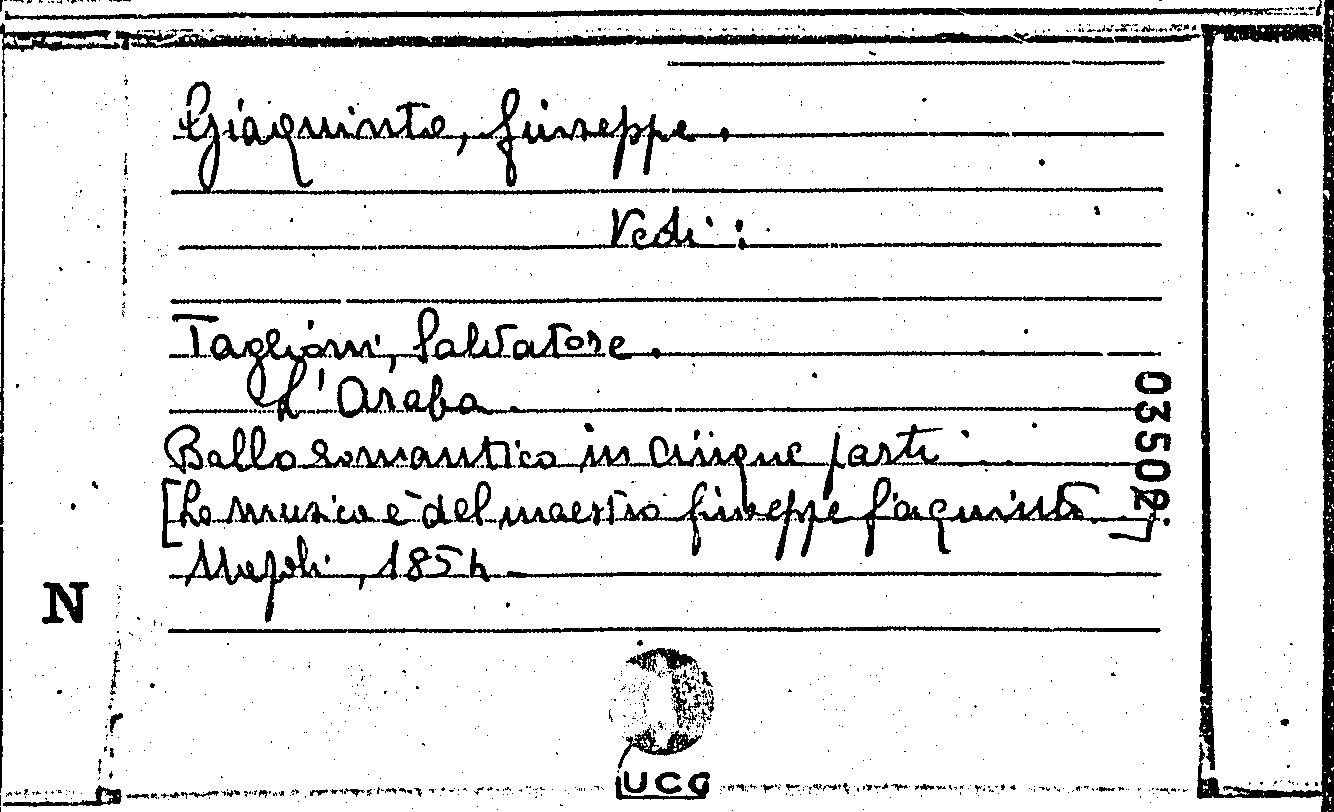 Giaquinto, Giuseppe.
Vedi:
Taglioni, Salvatore.
L'Araba.
Ballo romantico in cinque parti.
[La musica è del maestro Giuseppe Giaquinto]
Napoli, 1854.
03502
N
UCG